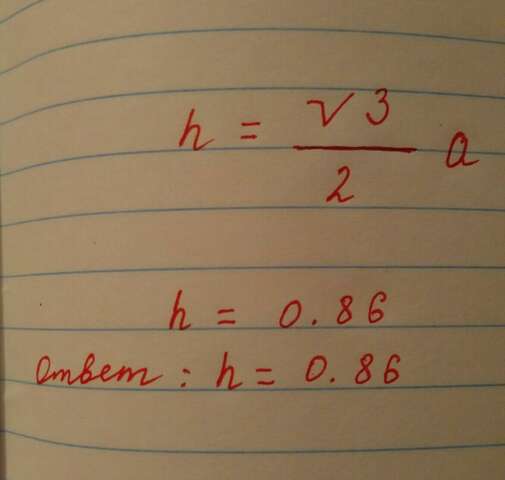 h = √3/2 a
h = 0.86
Ответ: h = 0.86